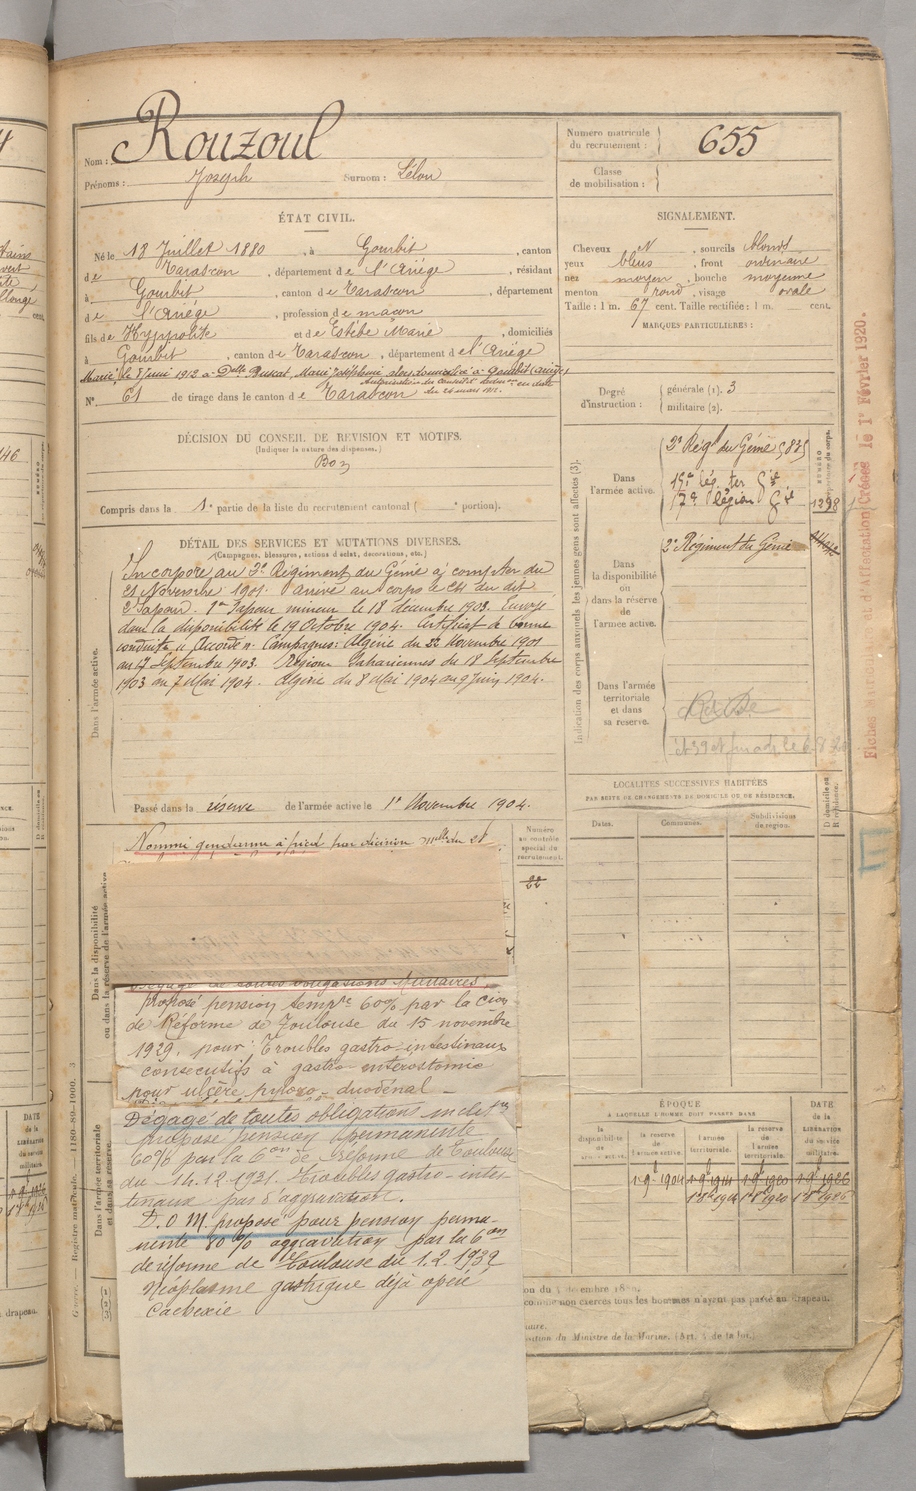 Nom : Rouzoul
Prénoms : Joseph Surnom : Lélou
Numéro matricule du recrutement : 655
Classe de mobilisation :
ÉTAT CIVIL.
Né le 18 Juillet 1880, à Gourbit, canton
de Tarascon, département de l'Ariège, résidant
à Gourbit, canton de Tarascon, département
de l'Ariège, profession de maçon
fils de Hyppolite et de Estèbe Marie, domiciliés
à Gourbit, canton de Tarascon, département de l'Ariège
Marié, le 8 Juin 1912 à Delle Ruscat, Marie Joséphine, domiciliée à Gourbit (Ariège)
Autorisation du Conseil en date
du mars 1912.
N° 61 de tirage dans le canton de Tarascon
SIGNALEMENT.
Cheveux N, sourcils blonds
yeux bleus, front ordinaire
nez moyen, bouche moyenne
menton rond, visage ovale
Taille : 1 m. 67 cent. Taille rectifiée : 1 m. cent.
MARQUES PARTICULIÈRES :
Degré d'instruction : générale (1). 3
militaire (2).
DÉCISION DU CONSEIL DE REVISION ET MOTIFS.
(Indiquer la nature des dispenses.)
Bon
Compris dans la 1e partie de la liste du recrutement cantonal ( e portion).
DÉTAIL DES SERVICES ET MUTATIONS DIVERSES.
(Campagnes, blessures, actions d'éclat, décorations, etc.)
Dans l'armée active.
Incorporé au 2e Régiment du Génie à compter du
21 Novembre 1901. arrivé au corps le 21 du dit
2e Sapeur. 1er Sapeur mineur le 18 décembre 1903. Envoyé
dans la disponibilité le 19 Octobre 1904. Certificat de bonne
conduite "Accordé". Campagnes : Algérie du 22 Novembre 1901
au 17 Septembre 1903. Régions Sahariennes du 18 Septembre
1903 au 7 Mai 1904. Algérie du 8 Mai 1904 au 9 Juin 1904.
Passé dans la réserve de l'armée active le 1er Novembre 1904.
Indication des corps auxquels les jeunes gens sont affectés (3).
Dans l'armée active.
2e Régt du Génie
15e lég. ter Gie
17e légion Gie
1298
Dans la disponibilité ou dans la réserve de l'armée active.
2e Régiment du Génie
Dans l'armée territoriale et dans sa réserve.
LOCALITÉS SUCCESSIVES HABITÉES
PAR SUITE DE CHANGEMENTS DE DOMICILE OU DE RÉSIDENCE.
Dates. Communes. Subdivisions de région. D domicile ou R résidence.
Numéro au contrôle spécial du recrutement.
22
Dans la disponibilité ou dans la réserve de l'armée active
Nommé gendarme à pied par décision mlle du 21
Dégagé de toutes obligations militaires,
proposé pension tempre 60% par la Cion
de Réforme de Toulouse du 15 novembre
1929, pour : Troubles gastro-intestinaux
consécutifs à gastro-entérostomie
pour ulcère pyloro-duodénal -
Dégagé de toutes obligations milres
proposé pension permanente
60% par la Con de Réforme de Toulouse
du 14.12.1931. Troubles gastro-intes-
tinaux pas d'aggravation.
D.O.M. proposé pour pension perma-
nente 80% aggravation par la Con
de réforme de Toulouse du 1.2.1939
Néoplasme gastrique déjà opéré
Cachexie
Dans l'armée territoriale et dans sa réserve.
ÉPOQUE
À LAQUELLE L'HOMME DOIT PASSER DANS
la disponibilité de l'armée active. la réserve de l'armée active. l'armée territoriale. la réserve de l'armée territoriale. DATE de la LIBÉRATION du service militaire.
1 9bre 1904 1 9bre 1914 1 9bre 1920 1 9bre 1926
Fiches Matricule et d'Affectation Créées le 1er Février 1920.
comme non exercés tous les hommes n'ayant pas passé au drapeau.
Ministre de la Marine. (Art. de la loi.)
Registre matricule.